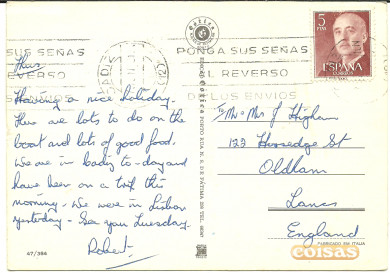 PONGA SUS SEÑAS
AL REVERSO
DE LOS ENVIOS
5
PTAS
ESPAÑA
CORREOS
SUS SEÑAS
REVERSO
CADIZ
Thurs
Having a nice holiday.
There are lots to do on the
boat and lots of good food.
We are in Cadiz to-day and
have been on a trip this
morning. We were in Lisbon
yesterday. See you Tuesday.
Robert.
47/394
To Mr & Mrs J Higham
123 St
Oldham
Lancs
England
FABRICADO EN ITALIA
coisas